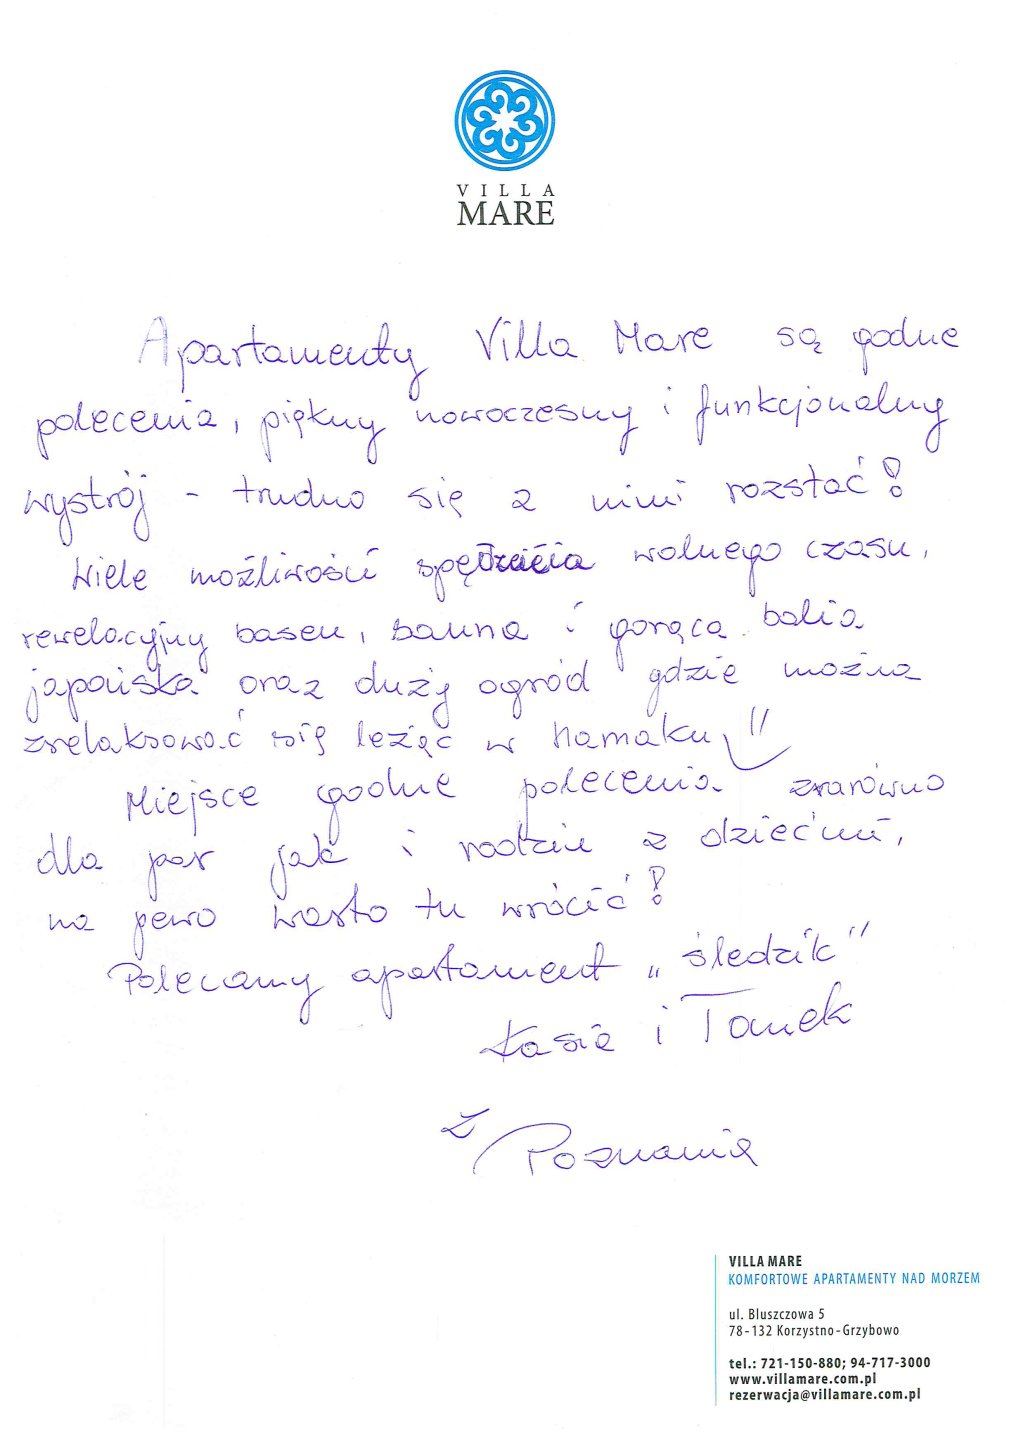 VILLA
MARE
Apartamenty Villa Mare są godne
polecenia, piękny nowoczesny i funkcjonalny
wystrój - trudno się z nimi rozstać!
Wiele możliwości spędzenia wolnego czasu,
rewelacyjny basen, sauna i gorąca balia
japońska oraz duży ogród gdzie można
zrelaksować się leżąc w hamaku !!
Miejsce godne polecenia zarówno
dla par jak i rodzin z dziećmi,
na pewo warto tu wrócić!
Polecamy apartament „śledzik"
Kasia i Tomek
z Poznania
VILLA MARE
KOMFORTOWE APARTAMENTY NAD MORZEM
ul. Bluszczowa 5
78-132 Korzystno-Grzybowo
tel.: 721-150-880; 94-717-3000
www.villamare.com.pl
rezerwacja@villamare.com.pl